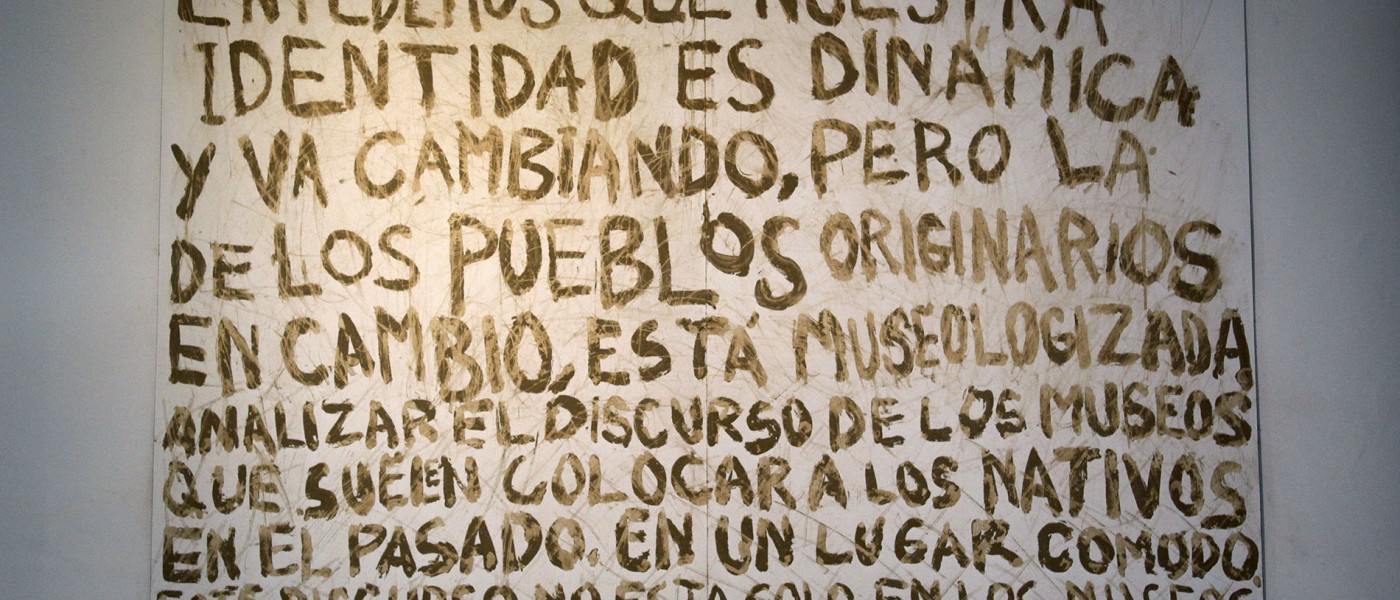 ENTEDEMOS QUE NUESTRA
IDENTIDAD ES DINÁMICA
Y VA CAMBIANDO, PERO LA
DE LOS PUEBLOS ORIGINARIOS
EN CAMBIO, ESTÁ MUSEOLOGIZADA.
ANALIZAR EL DISCURSO DE LOS MUSEOS
QUE SUELEN COLOCAR A LOS NATIVOS
EN EL PASADO. EN UN LUGAR COMODO.
ESTE DISCURSO NO ESTA SOLO EN LOS MUSEOS